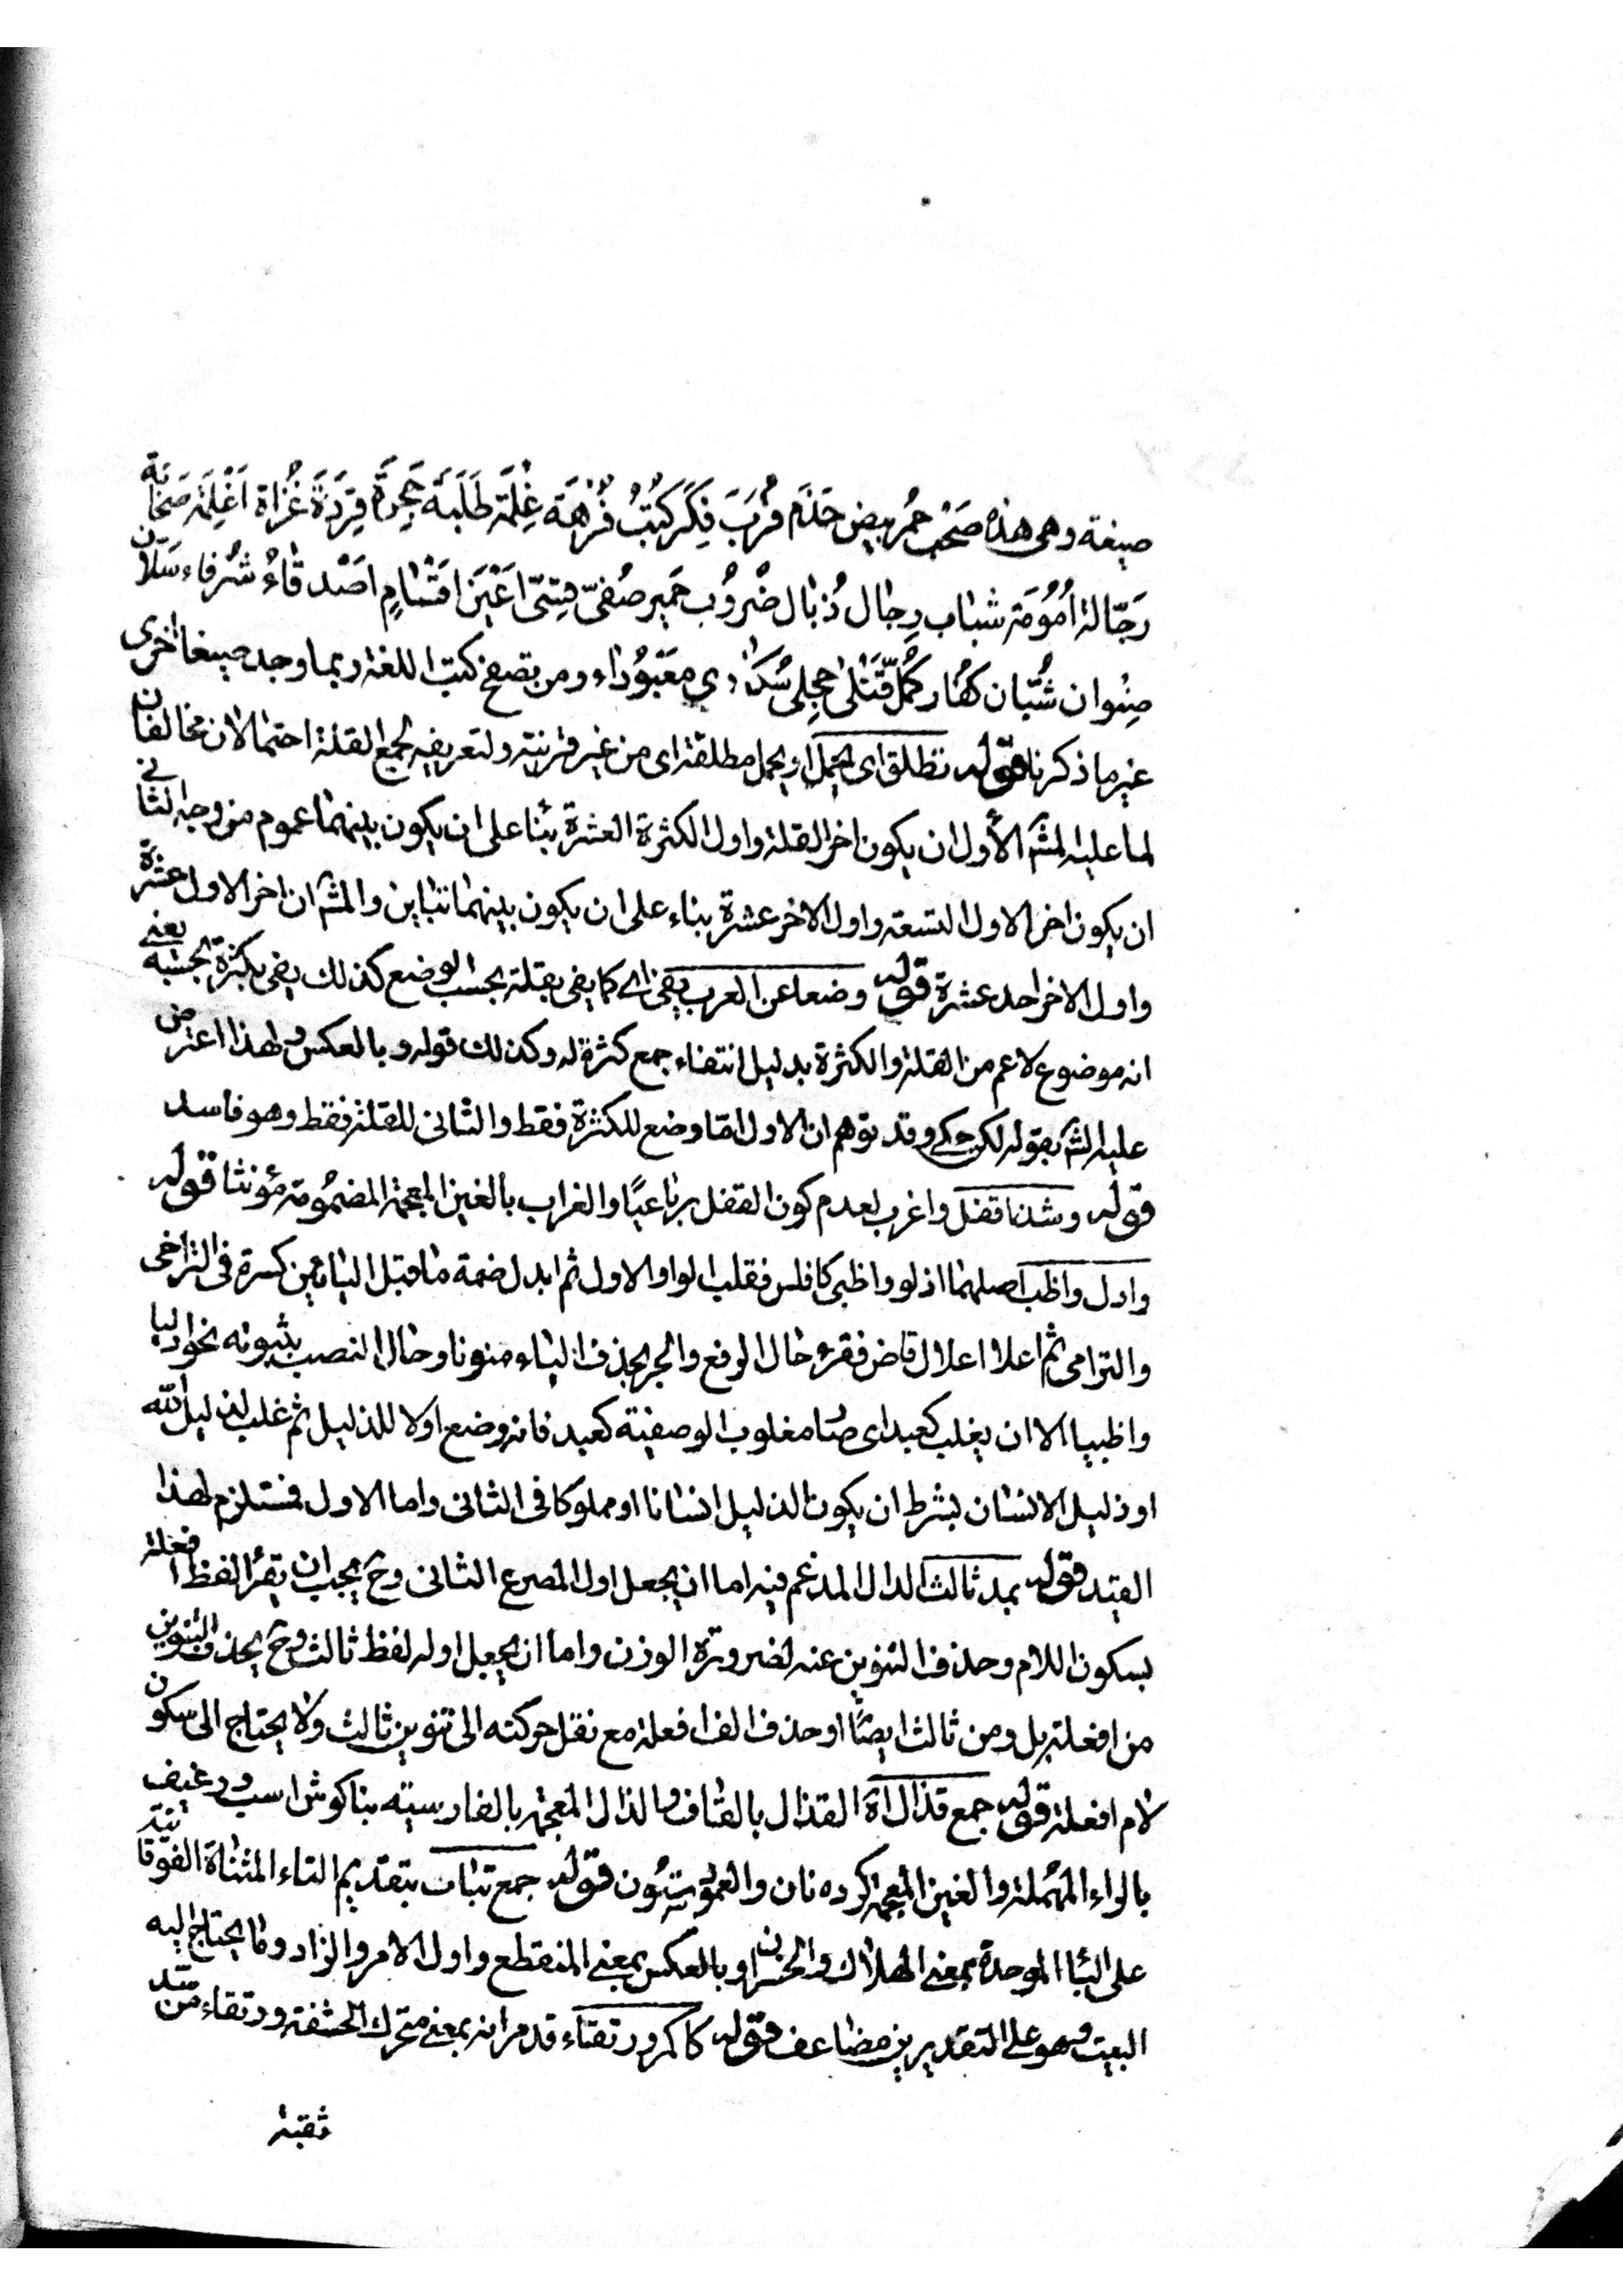 صيغة وهى هذه صَحْب حُمُر بيض خَدَم قُرَب فِكَر كُتُبٌ فُرْهَة غِلْمَة طَلَبَة حِجَرَة قِرَدَةَ غُزاة اَغْلِمَة صَحَابَة
رَجّالة اُمُومَة شباب رِجال ذُبال ضُرُوب حَمِير صُفىّ قِتىّ اَعْيَن اَقْسَام اَصْدقاءُ شُرفاء سُلّان
صِنْوان شُبّان كُفّار كُمَّل قَتْلى حِجلى سُكارى مَعْبُوداء ومن تصفح كتب اللغة ربما وجد صيغا اخرى
غير ما ذكرنا قوله تطلق اى تحمل مطلقة اى من غير قرينة ولتعريفه لجمع القلة احتمالان مخالفان
لما عليه المش الأول ان يكون اخر القلة واول الكثرة العشرة بناء على ان يكون بينهما عموم من وجه الثانى
ان يكون اخر الاول التسعة واول الاخر عشرة بناء على ان يكون بينهما تباين والمش ان اخر الاول عشرة
واول الاخر احد عشرة قوله وضعا عن العرب يفى اى كما يفى بقلة بحسب الوضع كذلك يفى بكثرة بحسبه يعنى
انه موضوع لاعم من القلة والكثرة بدليل انتفاء جمع كثرة له وكذلك قوله وبالعكس ولهذا اعترض
عليه الش بقوله لكن حكى وقد توهم ان الاول انما وضع للكثرة فقط والثانى للقلة فقط وهو فاسد
قوله وشذ اقفل واغرب لعدم كون القفل رباعيًا والغراب بالغين المعجمة المضمُومة مؤنثا قوله
وادل واظب اصلهما ادلو واظبى كافلس فقلب الواو الاول ثم ابدل ضمة ما قبل اليائين كسرة فى التراخى
والترامى ثم اعلا اعلال قاض فقره حال الرفع والجر بحذف الياء منونا وحال النصب بثبوته نحو ادليا
واظبيا الا ان يغلب كعبد اى صا مغلوب الوصفية كعبد فانه وضع اولا للذليل ثم غلب لذليل الله
او ذليل الانسان بشرط ان يكون الذليل انسانا او مملوكا فى الثانى واما الاول فمستلزم لهذا
القيد قوله بمد ثالث الدال المدغم فيه اما ان يجعل اول المصرع الثانى وح يجب ان يقرأ لفظ افعلة
بسكون اللام وحذف التنوين عنه لضرورة الوزن واما ان يجعل اوله لفظ ثالث وح يحذف التنوين
من افعلة بل ومن ثالث ايضًا او حذف الف افعلة مع نقل حركته الى تنوين ثالث ولا يحتاج الى سكون
لام افعلة قوله جمع قذال اه القذال بالقاف والذال المعجمة بالفارسية بناكوش اسب ورغيف
بالراء المهملة والغين المعجمة كرده نان والعمود ستون قوله جمع تباب بتقديم التاء المثناة الفوقانية
على الباء الموحدة بمعنى الهلاك والخسران او بالعكس بمعنى المنقطع واول الامر والزاد وما يحتاج اليه
البيت وهو على التقديرين مضاعف قوله كاكمر ورتقاء قد مر انه بمعنى متحرك الحشفة ورتقاء من
ثقبة